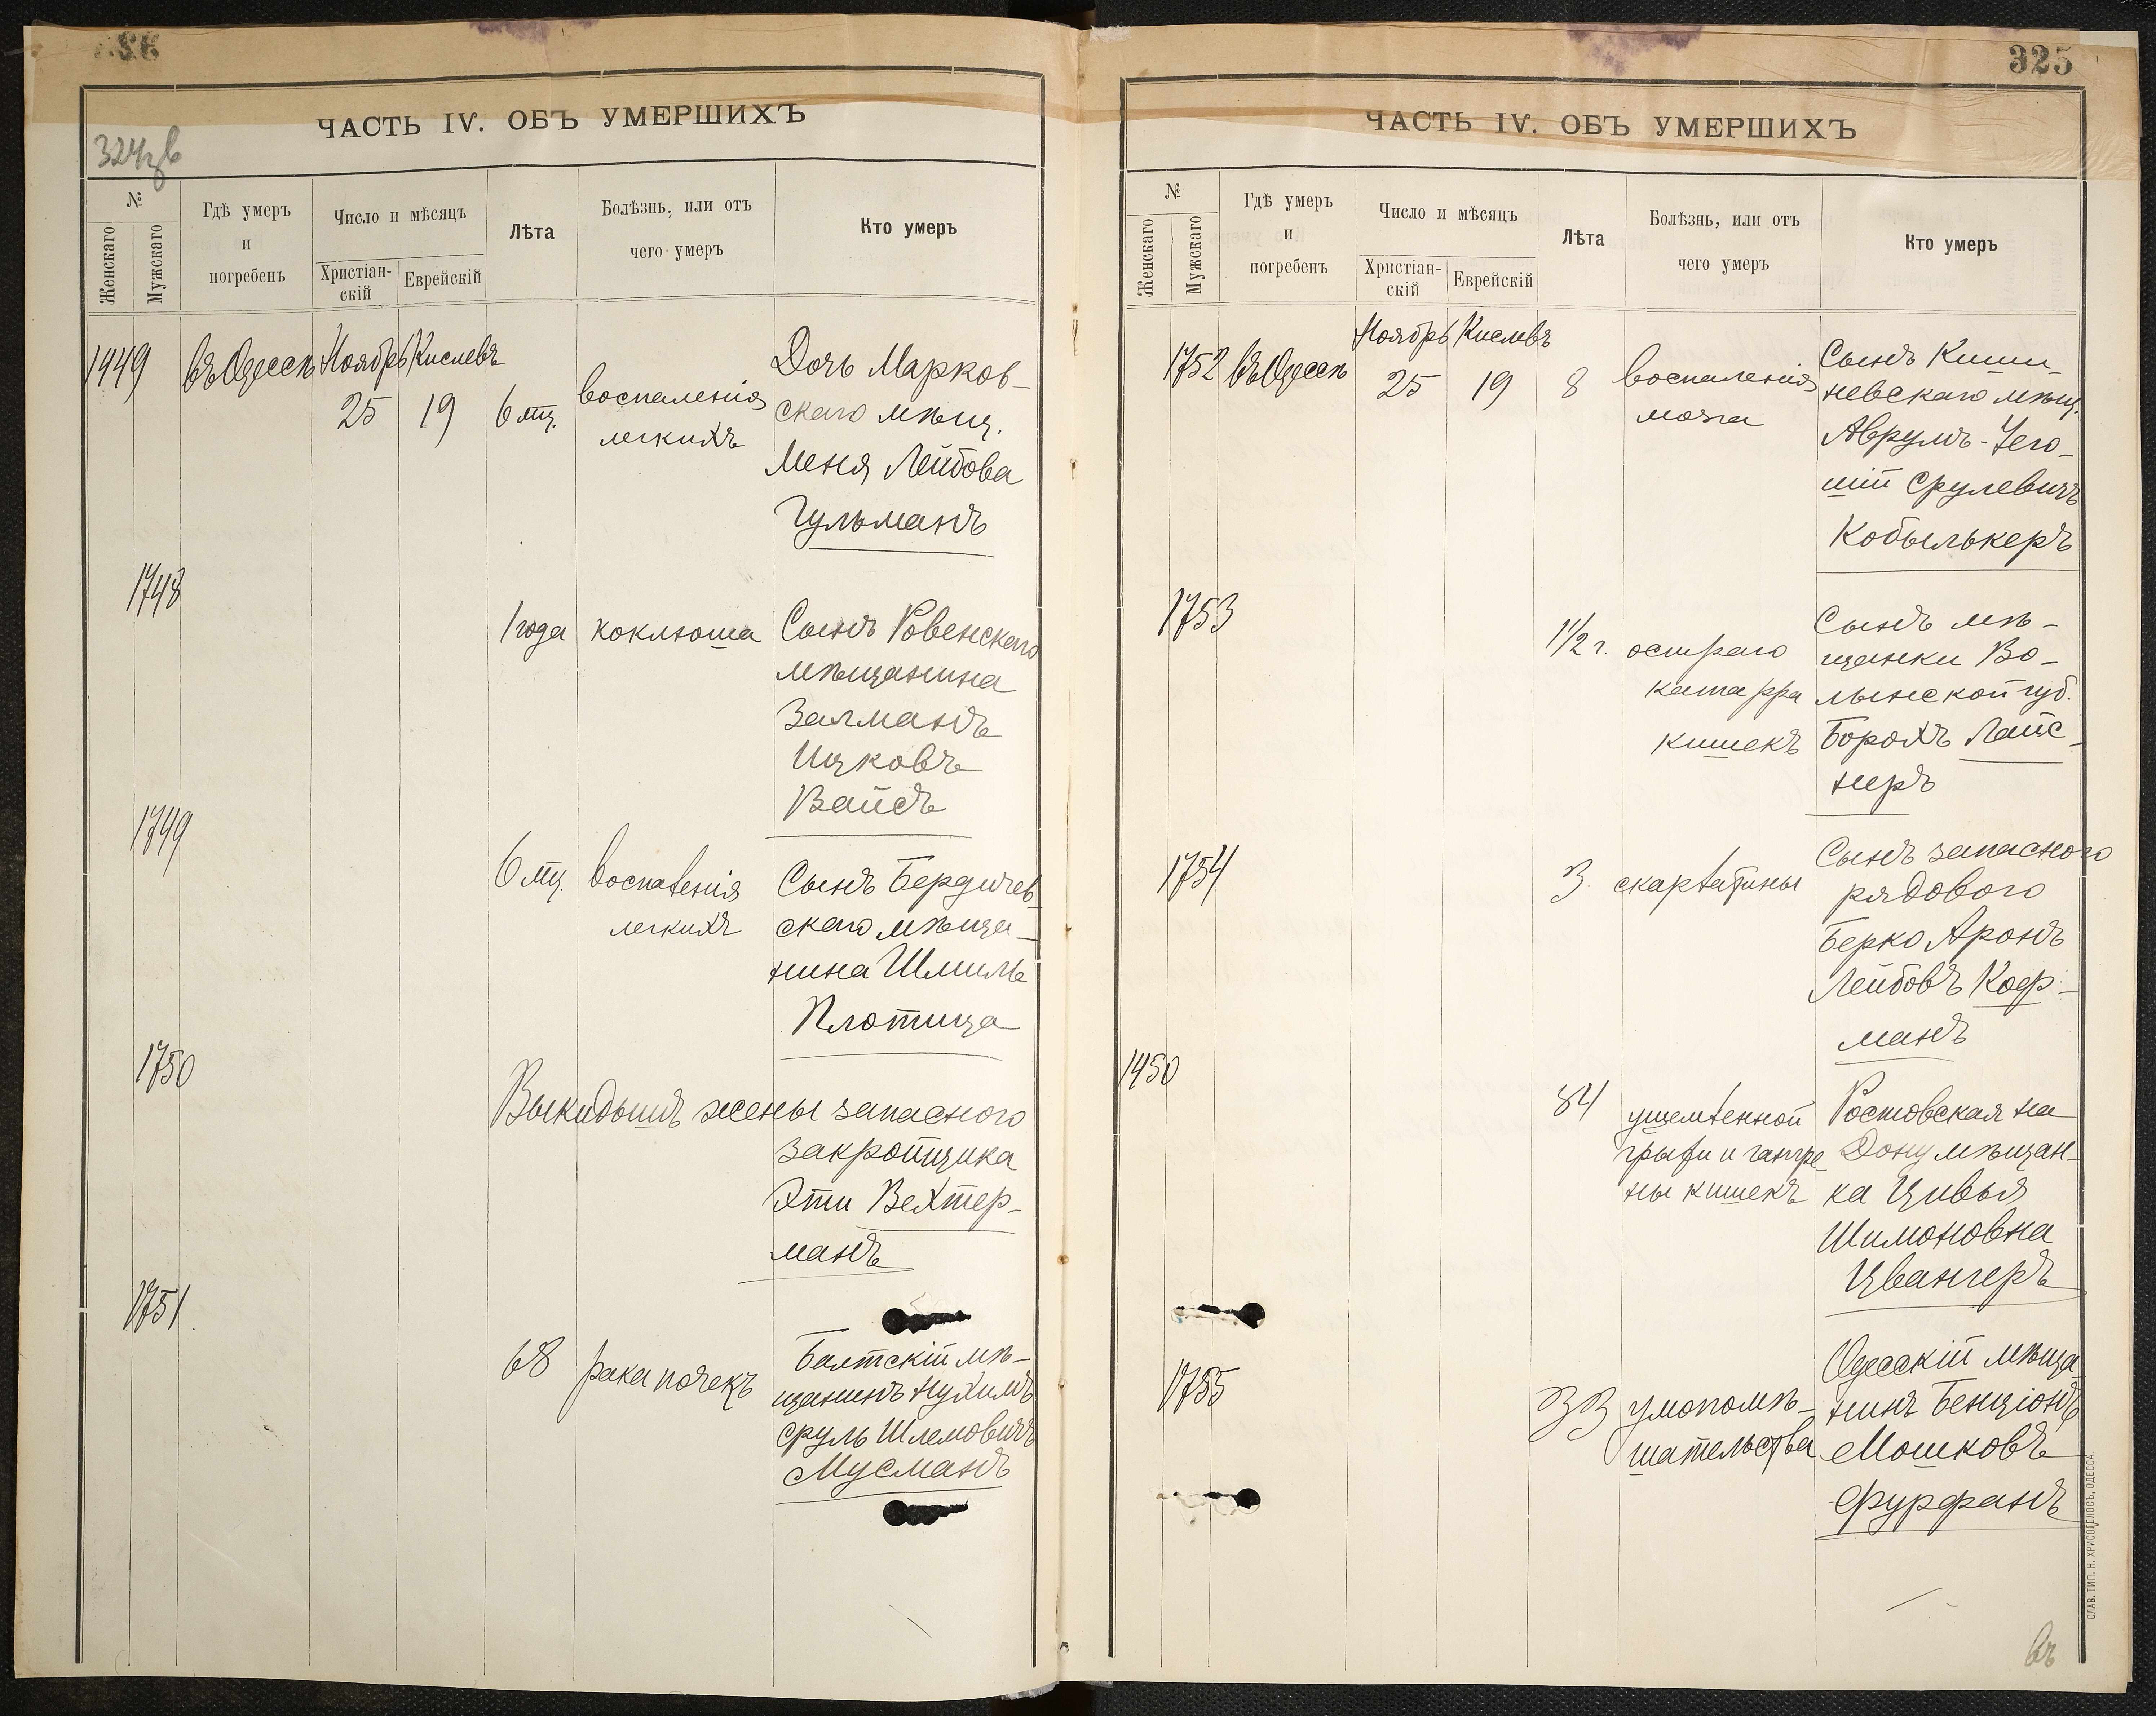 ЧАСТЬ IV. ОБЪ УМЕРШИХЪ
№
Женскаго
Мужскаго
Гдѣ умеръ
и
погребенъ
Число и мѣсяцъ
Христіан-
скій
Еврейскій
Лѣта
Болѣзнь, или отъ
чего умеръ
Кто умеръ
1449 въ Одессѣ Ноябрь Кислевъ
25 19 6 мц.
воспаленія
легкихъ
Дочь Марков-
скаго мѣщ.
Меня Лейбова
Гульманъ
1748
1 года коклюша
Сынъ Ровенскаго
мѣщанина
Залманъ
Ицковъ
Вайсъ
1749
6 мц. воспаленія
легкихъ
Сынъ Бердичев-
скаго мѣща-
нина Шмиль
Плотица
1750
Выкидышъ жены запаснаго
закройщика
Эти Вехтер-
манъ
1751
68 рака почекъ
Балтскій мѣ-
щанинъ Нухимъ
Сруль Шлемовичъ
Мусманъ
325
ЧАСТЬ IV. ОБЪ УМЕРШИХЪ
№
Женскаго
Мужскаго
Гдѣ умеръ
и
погребенъ
Число и мѣсяцъ
Христіан-
скій
Еврейскій
Лѣта
Болѣзнь, или отъ
чего умеръ
Кто умеръ
1752 въ Одессѣ Ноябрь Кислевъ
25 19 8
воспаленія
мозга
Сынъ Киши-
невскаго мѣщ.
Аврумъ-Іего-
шій Срулевичъ
Кобылькеръ
1753
1 1/2 г. остраго
катарра
кишекъ
Сынъ мѣ-
щанки Во-
лынской губ.
Борохъ Лайс-
неръ
1754
3 скарлатины
Сынъ запасного
рядового
Берко Аронъ
Лейбовъ Коф-
манъ
1450
84 ущемленной
грыжи и гангре-
ны кишекъ
Ростовская на
Дону мѣщан-
ка Цивья
Шимоновна
Цвангеръ
1755
33 умопомѣ-
шательства
Одесскій мѣща-
нинъ Бенціонъ
Мошковъ
Фурфанъ
въ
СЛАВ. ТИП. Н. ХРИСОГЕЛОСЪ, ОДЕССА.